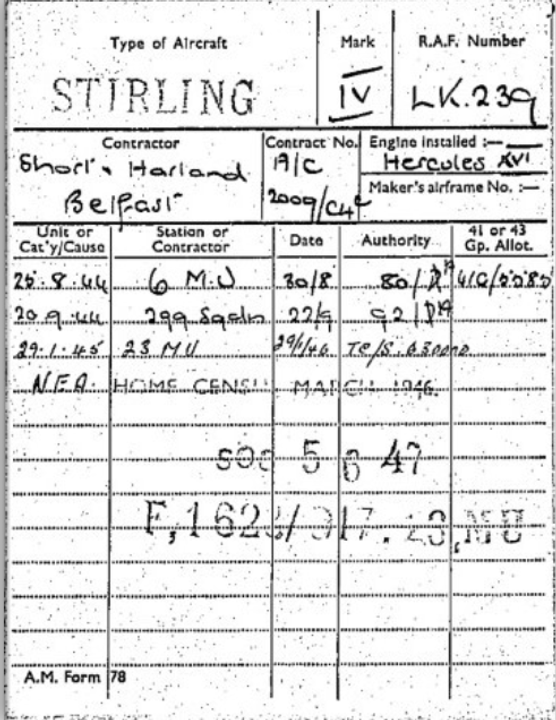 Type of Aircraft Mark R.A.F. Number
STIRLING IV LK.239
Contractor Contract No. Engine installed :—
Short & Harland A/C Hercules XVI
Maker's airframe No. :—
Belfast 2009/C4c
Unit or Cat'y/Cause Station or Contractor Date Authority 41 or 43 Gp. Allot.
25.8.44 6 M.U 30/8 80/DA 41G/
20.9.44 299 Sqdn 22/9 92/DA
29.1.45 23 MU 29/1/46 TC/S.
N.E.A. HOME CENSUS MARCH 1946.
SOC 5 6 47
F,1628/ 23,MU
A.M. Form 78